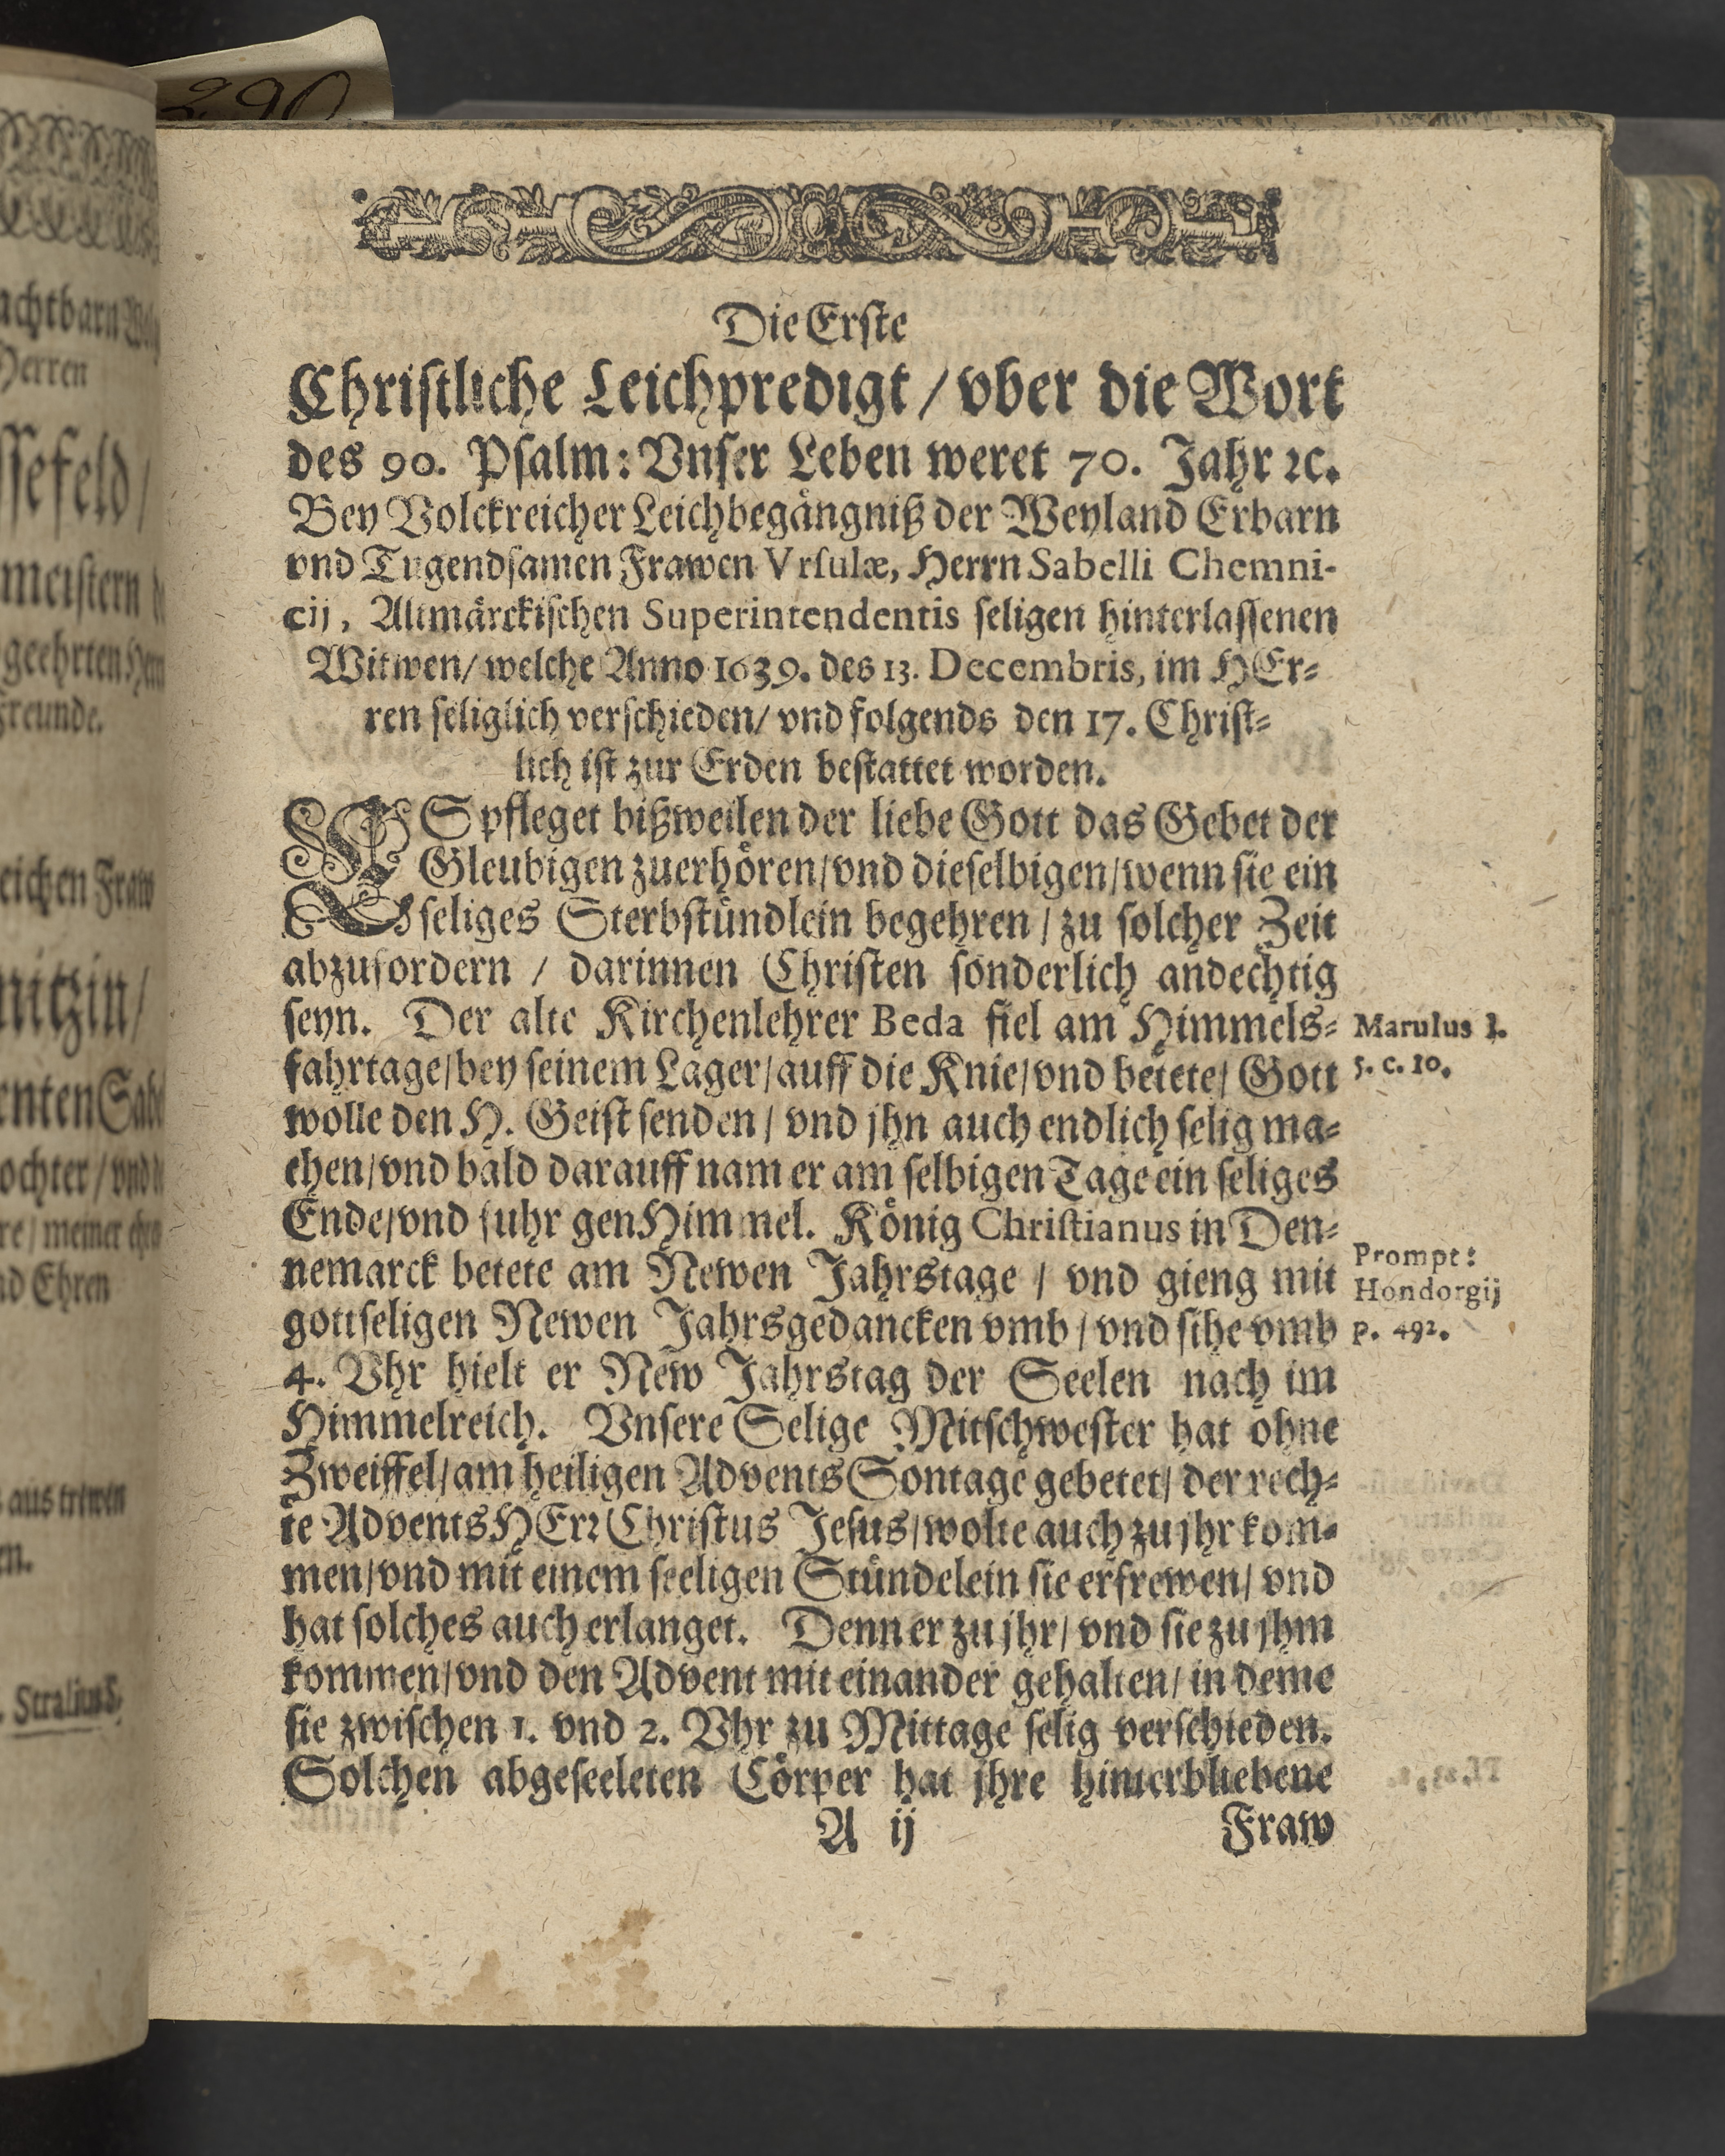 290
achtbarn
Herren
ssefeld/
meistern
geehrten
Freunde.
eichen Fraw
nitzin/
enten
ochter/ vnd
re/ meiner
nd Ehren
aus trewen
en.
. Stralius
Die Erste
Christliche Leichpredigt / vber die Wort
des 90. Psalm: Vnser Leben weret 70. Jahr ꝛc.
Bey Volckreicher Leichbegängniß der Weyland Erbarn
vnd Tugendsamen Frawen Vrsulæ, Herrn Sabelli Chemni-
cij, Altmärckischen Superintendentis seligen hinterlassenen
Witwen/ welche Anno 1639. des 13. Decembris, im HEr-
ren seliglich verschieden/ vnd folgends den 17. Christ-
lich ist zur Erden bestattet worden.
ES pfleget bißweilen der liebe Gott das Gebet der
Gleubigen zuerhören/vnd dieselbigen/wenn sie ein
seliges Sterbstündlein begehren / zu solcher Zeit
abzufordern / darinnen Christen sonderlich andechtig
seyn. Der alte Kirchenlehrer Beda fiel am Himmels-
fahrtage/bey seinem Lager/auff die Knie/vnd betete/ Gott
wolle den H. Geist senden / vnd jhn auch endlich selig ma-
chen/vnd bald darauff nam er am selbigen Tage ein seliges
Ende/vnd fuhr gen Himmel. König Christianus in Den-
nemarck betete am Newen Jahrstage / vnd gieng mit
gottseligen Newen Jahrsgedancken vmb / vnd sihe vmb
4. Vhr hielt er New Jahrstag der Seelen nach im
Himmelreich. Vnsere Selige Mitschwester hat ohne
Zweiffel/am heiligen Advents Sontage gebetet/ der rech-
te AdventsHErꝛ Christus Jesus/wolte auch zu jhr kom-
men/vnd mit einem seeligen Stündelein sie erfrewen/ vnd
hat solches auch erlanget. Denn er zu jhr/ vnd sie zu jhm
kommen/vnd den Advent mit einander gehalten/ in deme
sie zwischen 1. vnd 2. Vhr zu Mittage selig verschieden.
Solchen abgeseeleten Cörper hat jhre hinterbliebene
A ij Fraw
Marulus l.
5. c. 10.
Prompt:
Hondorgij
p. 492.